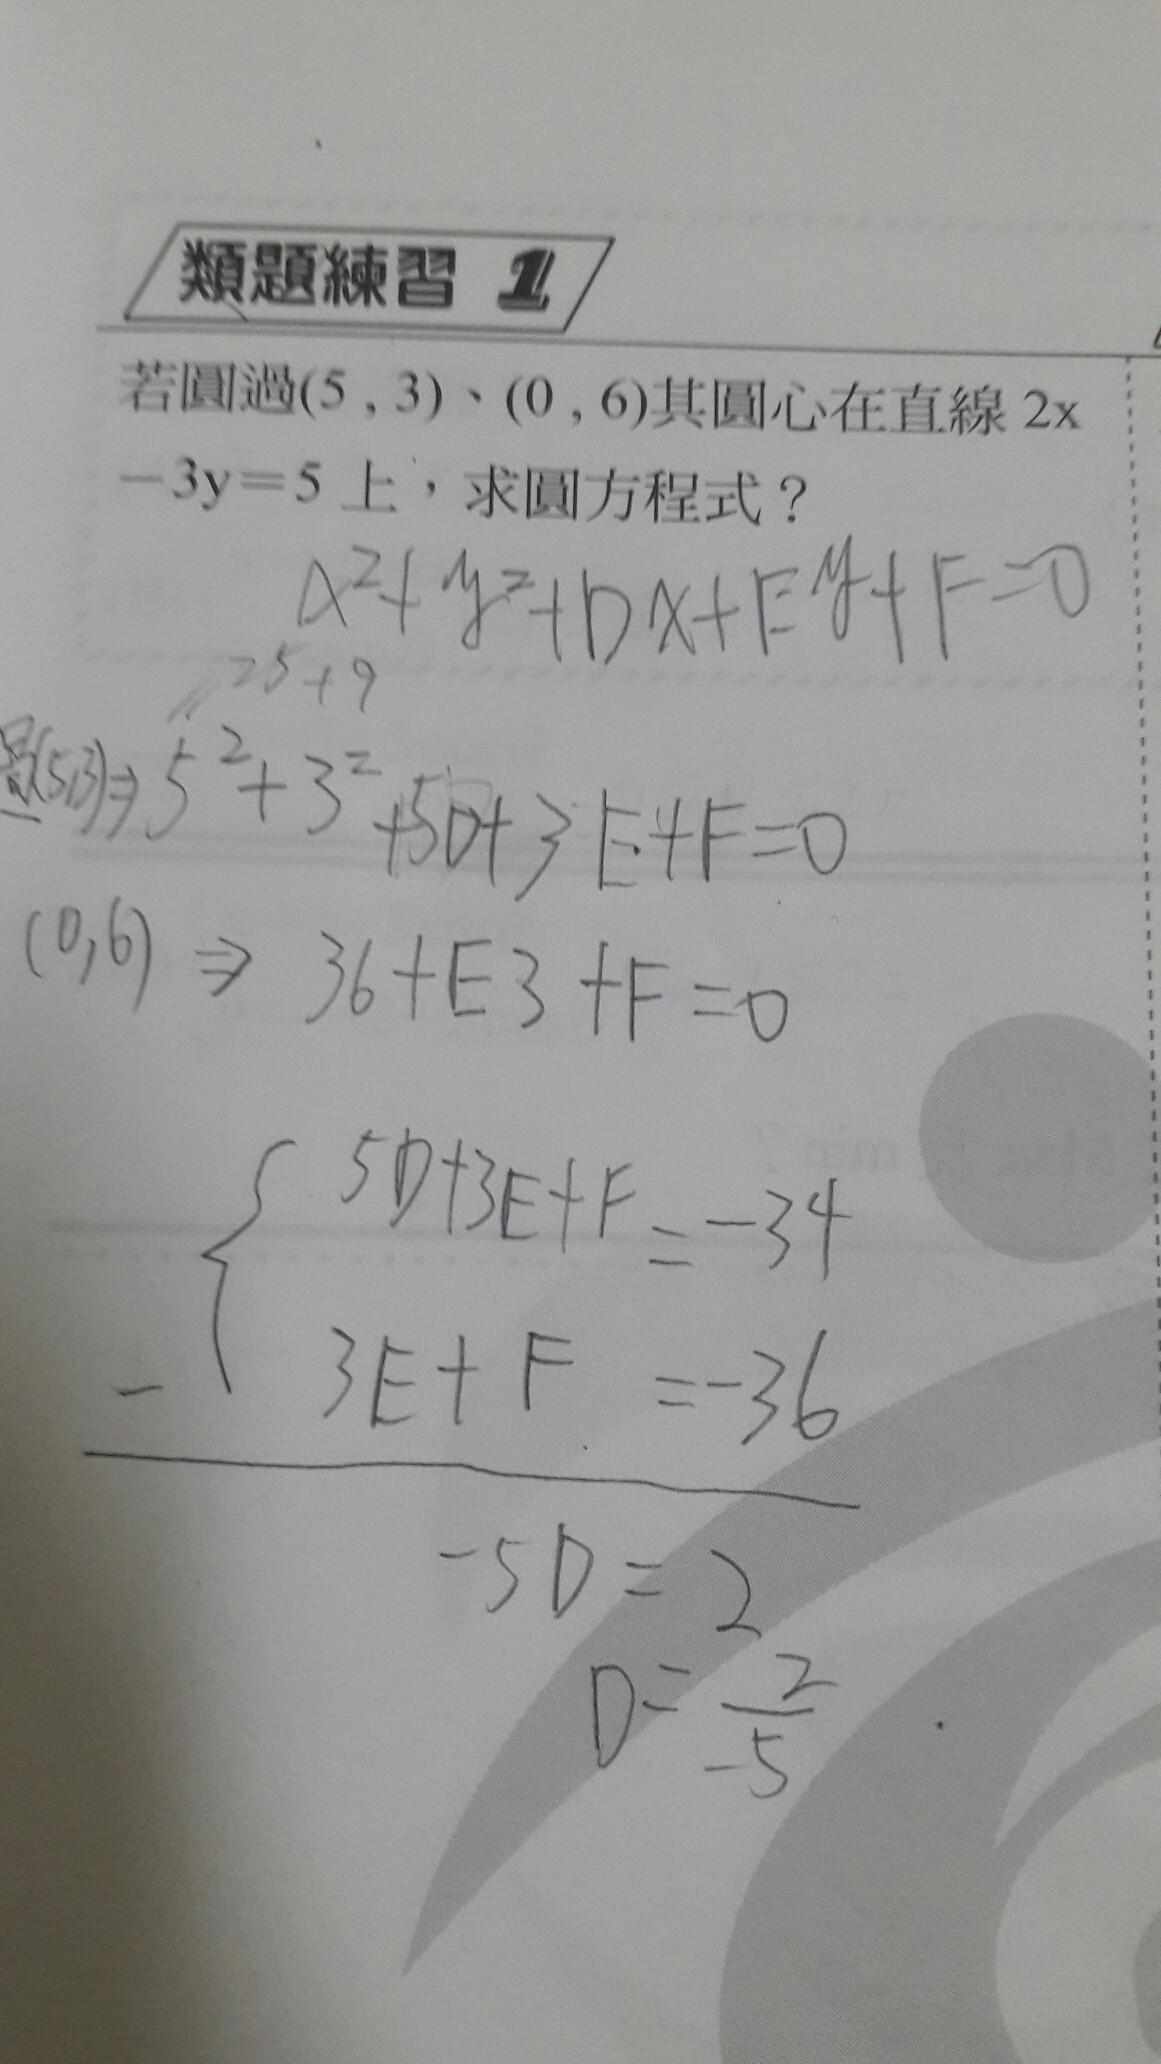 類題練習 1
若圓過(5 , 3)、(0 , 6)其圓心在直線 2x
－3y＝5 上，求圓方程式？
x²+y²+Dx+Ey+F=0
25+9
(5,3)⇒ 5²+3²+5D+3E+F=0
(0,6) ⇒ 36+E3+F=0
5D+3E+F=-34
- 3E+F =-36
-5D=2
D=2/-5